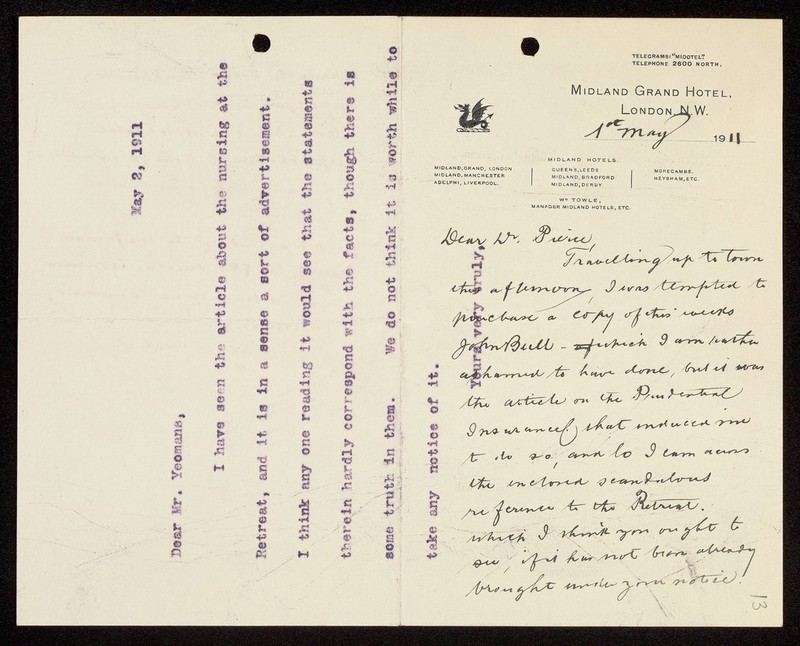 May 2, 1911
Dear Mr. Yeomans,
I have seen the article about the nursing at the
Retreat, and it is in a sense a sort of advertisement.
I think any one reading it would see that the statements
therein hardly correspond with the facts, though there is
some truth in them. We do not think it is worth while to
take any notice of it.
Yours very truly,
TELEGRAMS: "MIDOTEL".
TELEPHONE 2600 NORTH.
MIDLAND GRAND HOTEL,
LONDON, N.W.
1st May 1911
MIDLAND HOTELS.
MIDLAND, GRAND, LONDON
MIDLAND, MANCHESTER
ADELPHI, LIVERPOOL.
QUEEN'S, LEEDS
MIDLAND, BRADFORD
MIDLAND, DERBY
MORECAMBE.
HEYSHAM, ETC.
Wm TOWLE,
MANAGER MIDLAND HOTELS, ETC.
Dear Dr. Pierce,
Travelling up to town
this afternoon, I was tempted to
purchase a copy of this weeks
John Bull - which I am rather
ashamed to have done, but it was
the article on the Prudential
Insurance that induced me
to do so, and lo I cam across
the inclosed scandalous
reference to the Retreat.
which I think you ought to
see, if it has not been already
brought under your notice.
13